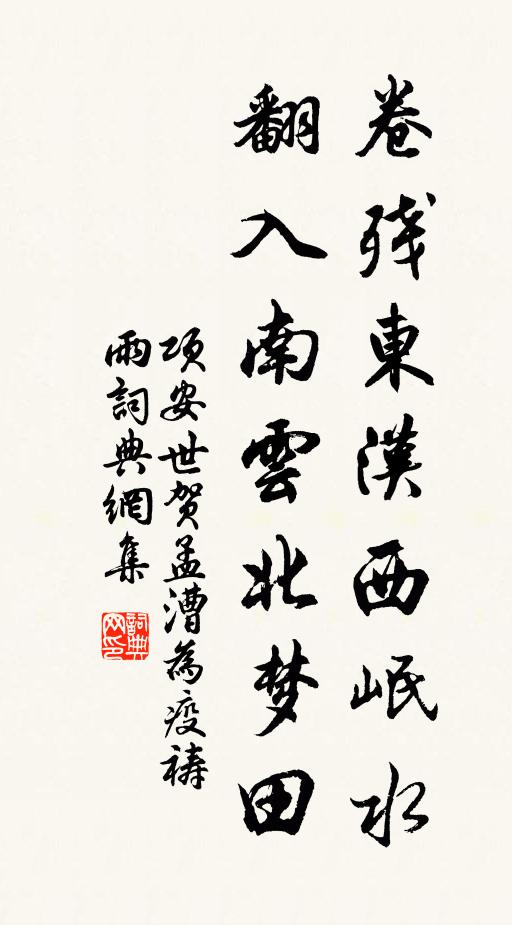 卷残東漢西岷水
翻入南雲北梦田
項安世贺孟漕為疫禱
雨詞典網集
詞典网印